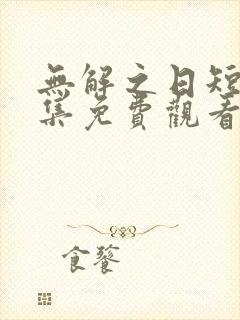 無解之日短
集免費觀看
食餮